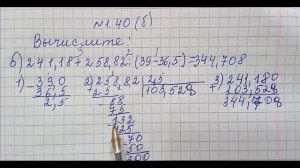 №1.40 (б)
Вычислите:
б) 241,18 + 258,82 : (39 - 36,5) = 344,708
1) 39,0 2) 258,82 | 2,5 3) 241,180
36,5 25 103,528 103,528
2,5 88 344,708
75
132
125
70
50
200